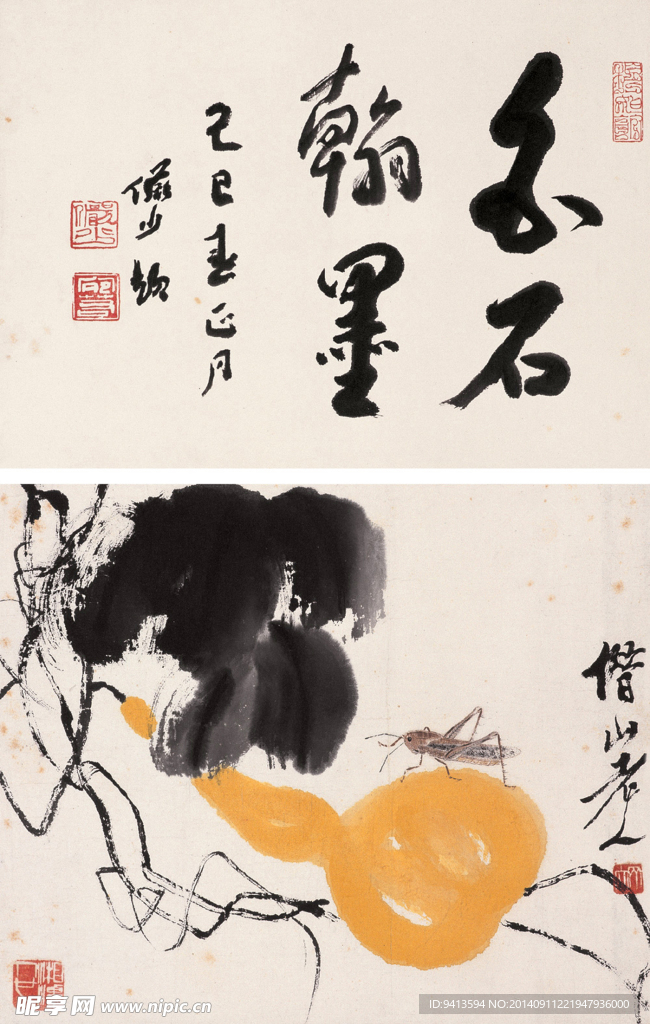 金石
翰墨
己巳春正月
儼少題
借山老人
昵享网 www.nipic.cn
ID:9413594 NO:20140911221947936000